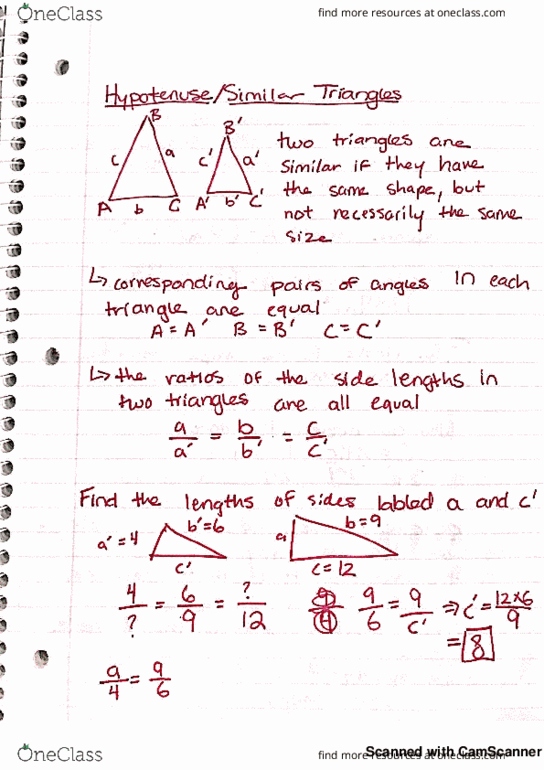 OneClass
find more resources at oneclass.com
Hypotenuse/Similar Triangles
B
c
a
A
b
C
B'
c'
a'
A'
b'
C'
two triangles are
similar if they have
the same shape, but
not necessarily the same
size
↳ corresponding pairs of angles in each
triangle are equal
A = A' B = B' C = C'
↳ the ratios of the side lengths in
two triangles are all equal
a/a' = b/b' = c/c'
Find the lengths of sides labled a and c'
a' = 4
b' = 6
c'
a
b = 9
c = 12
4/? = 6/9 = ?/12
9/6 = 9/c' ⇒ c' = 12×6/9
= 8
a/4 = 9/6
Scanned with CamScanner
OneClass
find more resources at oneclass.com